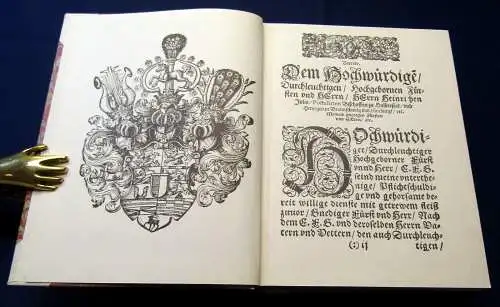 Vorrede.
Dem Hochwürdigē/
Durchleuchtigen / Hochgebornen Für-
sten vnd HErrn / HErrn Heinrichen
Julio / Postulirten Bischoffen zu Halberstad / vnd
Hertzogen zu Braunschweig vnd Lüneburg / etc.
Meinem gnedigen Fürsten
vnd HErrn / etc.
HOchwürdi-
ger / Durchleuchtiger
Hochgeborner Fürst
vnnd Herr / E. F. G.
seind meine vnterthe-
nige / Pflichtschuldi-
ge vnd gehorsame be-
reit willige dienste mit getrewem fleiß
zuuor / Gnediger Fürst vnd Herr / Nach
dem E. F. G. vnd deroselben Herrn Va-
tern vnd Vettern / den auch Durchleuch-
(:) ij
tigen /